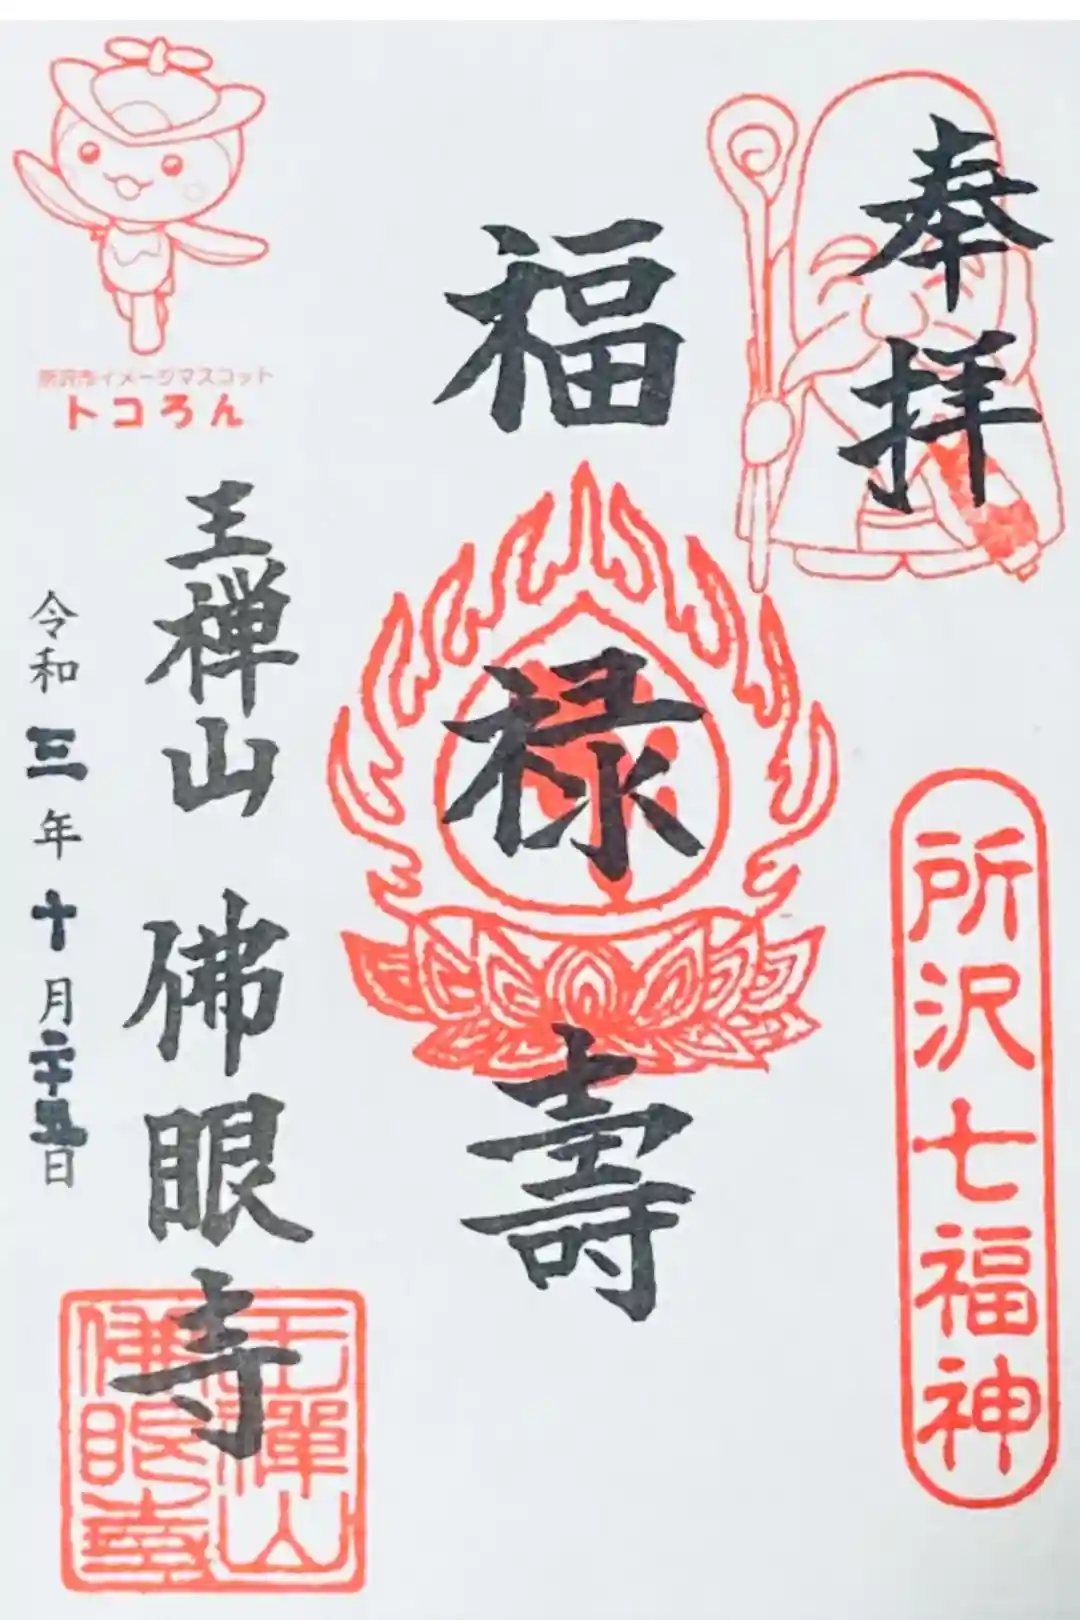 奉拝
所沢七福神
福
禄
壽
所沢市イメージマスコット
トコろん
王禅山 佛眼寺
王禪山
佛眼寺
令和三年十月二十五日